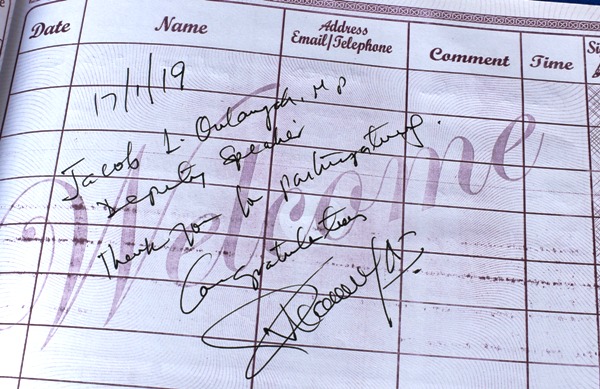 Date Name Address Email/Telephone Comment Time
17/1/19
Jacob L. Oulanyah, MP
Deputy Speaker
Thank you for participating.
Congratulations
Welcome